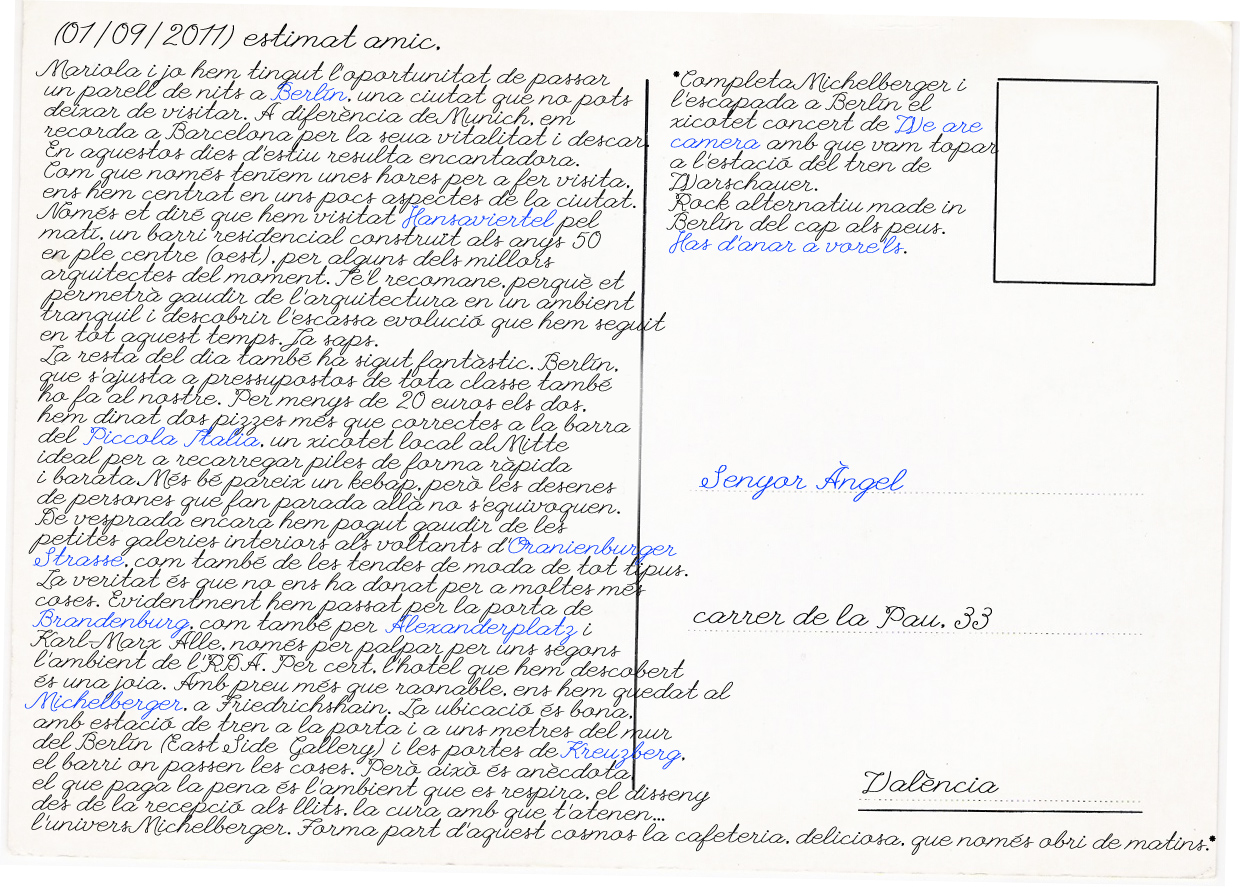 (01/09/2011) estimat amic.
Mariola i jo hem tingut l'oportunitat de passar
un parell de nits a Berlín, una ciutat que no pots
deixar de visitar. A diferència de Munich, em
recorda a Barcelona per la seua vitalitat i descar.
En aquestos dies d'estiu resulta encantadora.
Com que només teníem unes hores per a fer visita,
ens hem centrat en uns pocs aspectes de la ciutat.
Només et diré que hem visitat Hansaviertel pel
matí, un barri residencial construït als anys 50
en ple centre (oest), per alguns dels millors
arquitectes del moment. Te'l recomane, perquè et
permetrà gaudir de l'arquitectura en un ambient
tranquil i descobrir l'escassa evolució que hem seguit
en tot aquest temps. Ja saps.
La resta del dia també ha sigut fantàstic. Berlín,
que s'ajusta a pressupostos de tota classe també
ho fa al nostre. Per menys de 20 euros els dos,
hem dinat dos pizzes més que correctes a la barra
del Piccola Italia, un xicotet local al Mitte
ideal per a recarregar piles de forma ràpida
i barata. Més bé pareix un kebap, però les desenes
de persones que fan parada allà no s'equivoquen.
De vesprada encara hem pogut gaudir de les
petites galeries interiors als voltants d'Oranienburger
Strasse, com també de les tendes de moda de tot tipus.
La veritat és que no ens ha donat per a moltes més
coses. Evidentment hem passat per la porta de
Brandenburg, com també per Alexanderplatz i
Karl-Marx Alle, només per palpar per uns segons
l'ambient de l'RDA. Per cert, l'hotel que hem descobert
és una joia. Amb preu més que raonable, ens hem quedat al
Michelberger, a Friedrichshain. La ubicació és bona,
amb estació de tren a la porta i a uns metres del mur
del Berlín (East Side Gallery) i les portes de Kreuzberg,
el barri on passen les coses. Però això és anècdota,
el que paga la pena és l'ambient que es respira, el disseny
des de la recepció als llits, la cura amb que t'atenen...
l'univers Michelberger. Forma part d'aquest cosmos la cafeteria, deliciosa, que només obri de matins.*
*Completa Michelberger i
l'escapada a Berlín el
xicotet concert de We are
camera amb que vam topar
a l'estació del tren de
Warschauer.
Rock alternatiu made in
Berlín del cap als peus.
Has d'anar a vore'ls.
Senyor Àngel
carrer de la Pau, 33
València